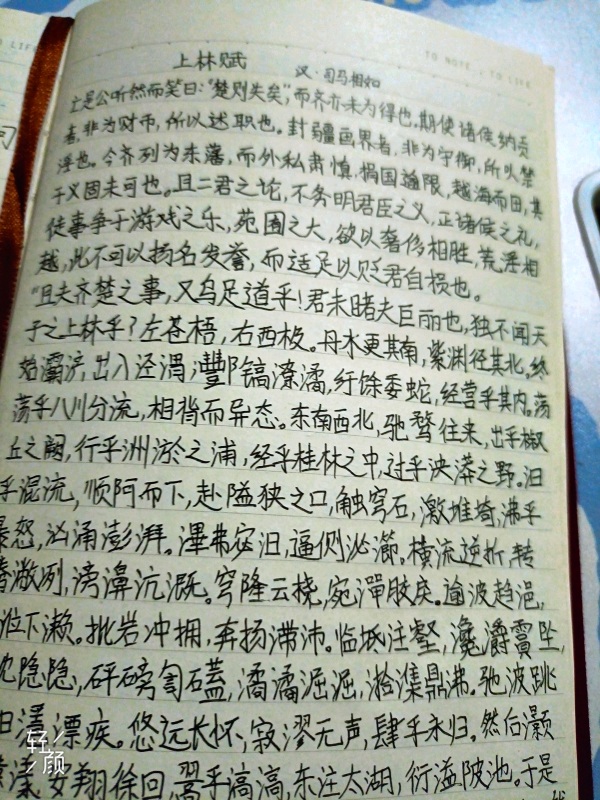 TO LIFE
TO NOTE , TO LIFE
上林赋
汉·司马相如
亡是公听然而笑曰:“楚则失矣,”而齐亦未为得也。期使诸侯纳贡
者,非为财币,所以述职也。封疆画界者,非为守御,所以禁
淫也。今齐列为东藩,而外私肃慎,捐国逾限,越海而田,其
于义固未可也。且二君之论,不务明君臣之义,正诸侯之礼,
徒事争于游戏之乐,苑囿之大,欲以奢侈相胜,荒淫相
越,此不可以扬名发誉,而适足以贬君自损也。
“且夫齐楚之事,又乌足道乎!君未睹夫巨丽也,独不闻天
子之上林乎?左苍梧,右西极。丹水更其南,紫渊径其北。终
始灞浐,出入泾渭;酆镐潦潏,纡馀委蛇,经营乎其内。荡
荡乎八川分流,相背而异态。东南西北,驰骛往来,出乎椒
丘之阙,行乎洲淤之浦,经乎桂林之中,过乎泱漭之野。汩
乎混流,顺阿而下,赴隘狭之口,触穹石,激堆埼,沸乎
暴怒,汹涌澎湃。滭弗宓汩,逼侧泌瀄。横流逆折,转
腾潎冽,滂濞沆溉。穹隆云桡,宛潬胶戾。逾波趋浥,
涖下濑。批岩冲拥,奔扬滞沛。临坻注壑,瀺灂霣坠,
沈隐隐,砰磅訇礚,潏潏淈淈,湁潗鼎沸。驰波跳
汩漂疾。悠远长怀,寂漻无声,肆乎永归。然后灏
漾,安翔徐回,翯乎滈滈,东注太湖,衍溢陂池。于是
轻颜